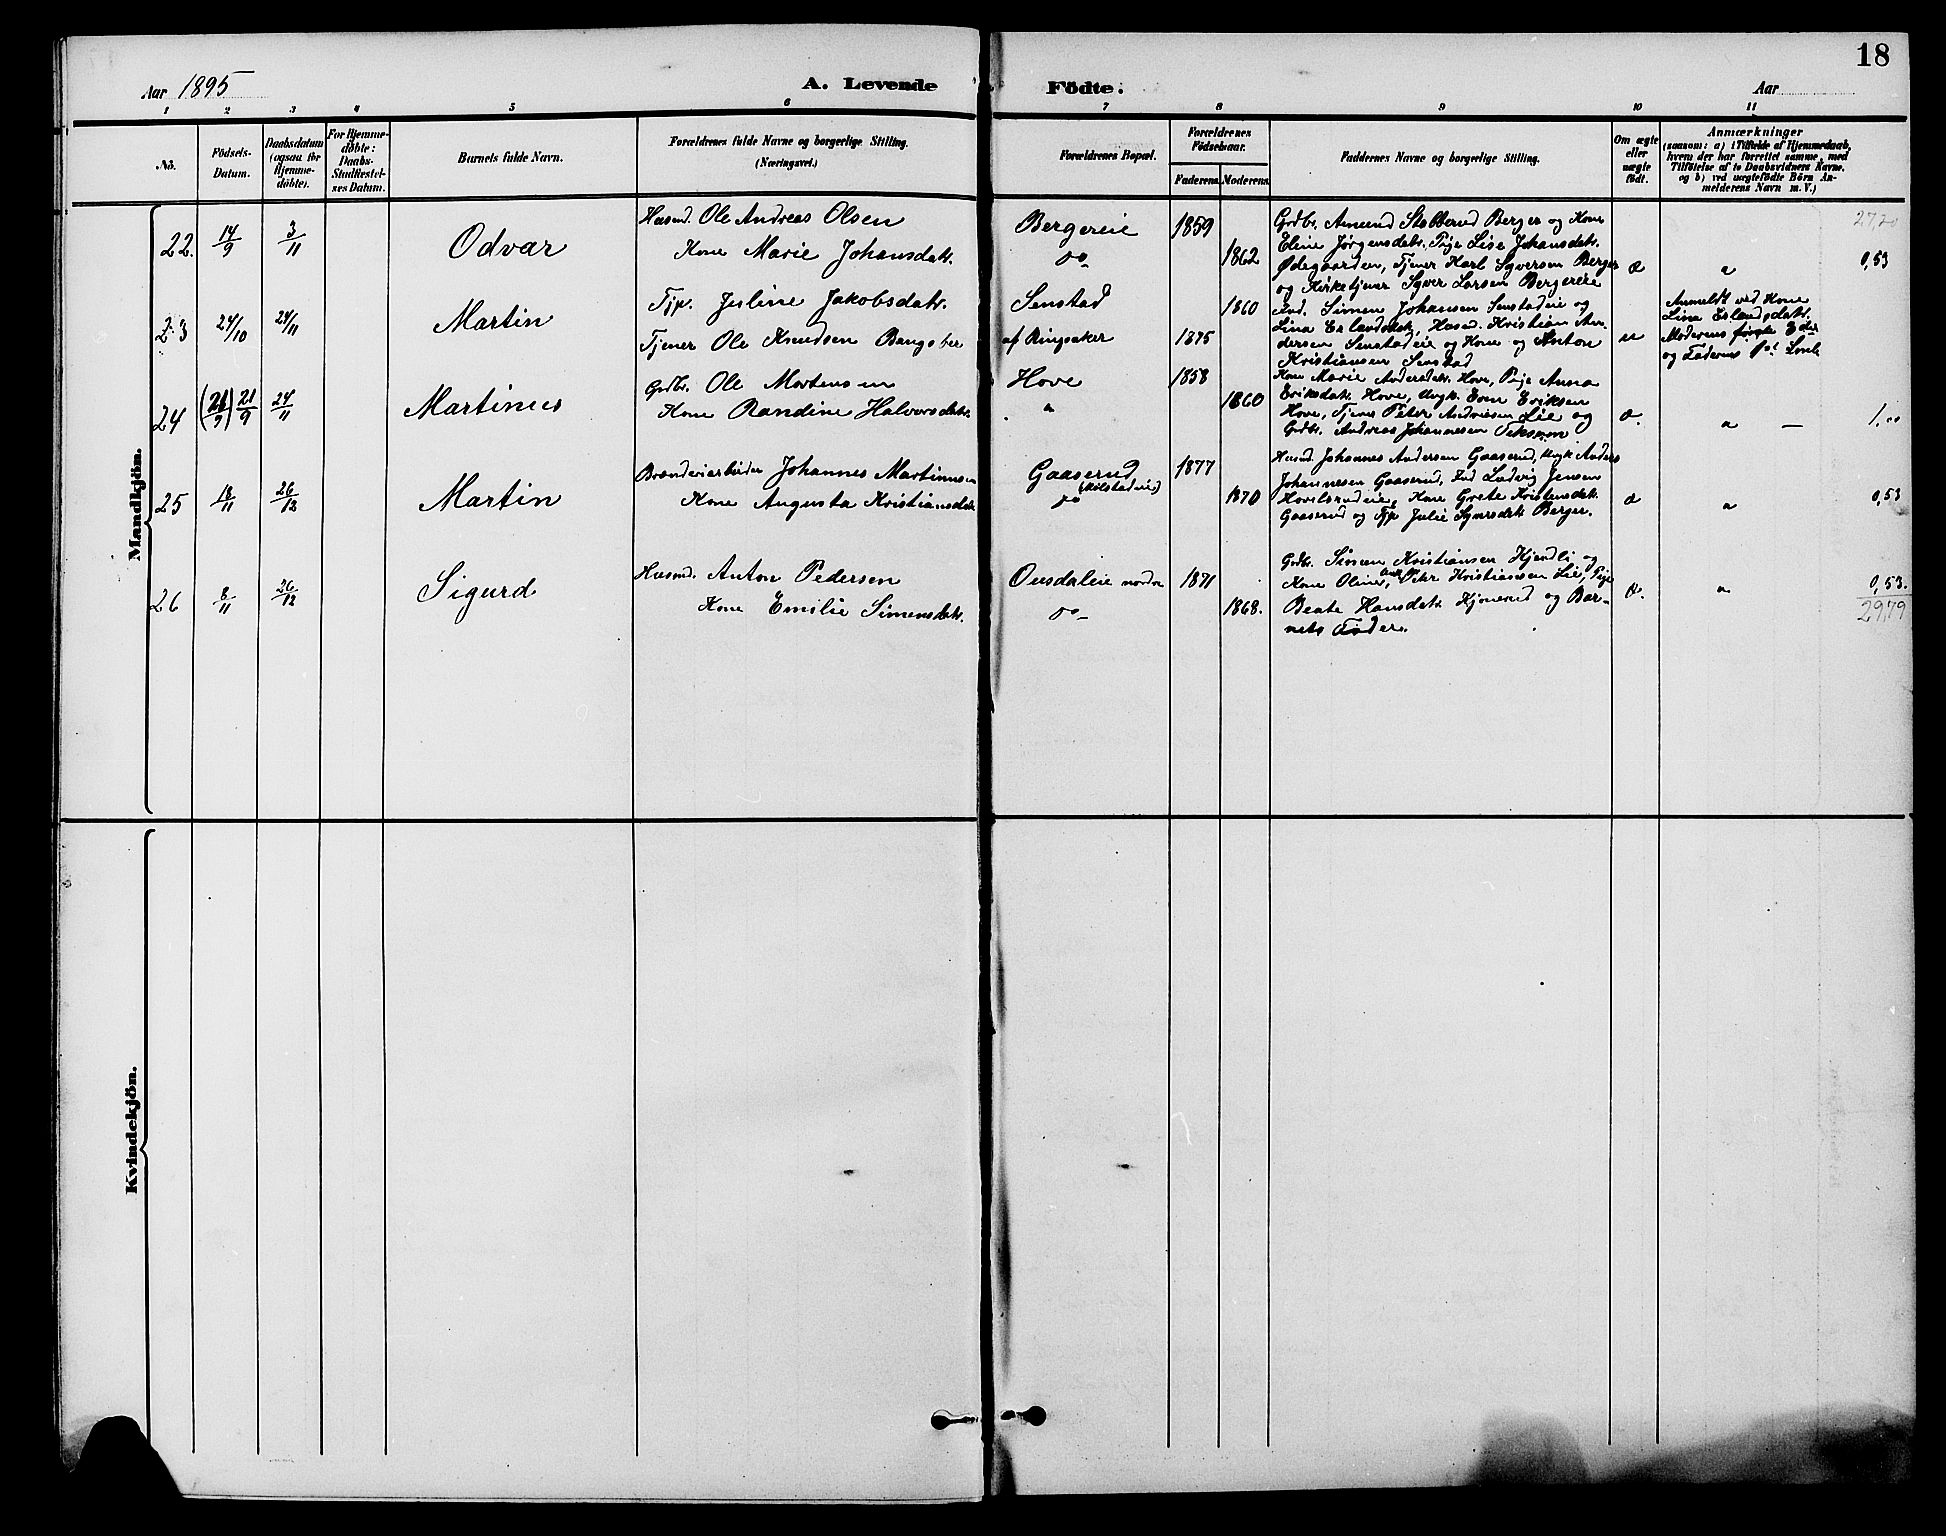 18
Aar 1895
A. Levende Födte.
Aar
1 2 3 4 5 6 7 8 9 10 11
No.
Födsels-
Datum.
Daabsdatum
(ogsaa for
Hjemme-
döbte).
For Hjemme-
döbte:
Daabs-
Stadfæstel-
ses Datum.
Barnets fulde Navn.
Forældrenes fulde Navne og borgerlige Stilling.
(Næringsvei.)
Forældrenes Bopæl.
Forældrenes
Födselsaar.
Faderens. Moderens.
Faddernes Navne og borgerlige Stilling.
Om ægte
eller
uægte
født.
Anmærkninger
(saasom: a) i Tilfælde af Hjemmedaab,
hvem der har forrettet samme, med
Tilföielse af to Daabsvidners Navne,
og b) ved uægtefödte Börn An-
melderens Navn m. V.)
Mandkjön.
22. 14/9 3/11 Odvar
Husmd. Ole Andreas Olsen
Kone Marie Johansdatr.
Bergereie
do-
1859
1862
Grdbr. Amund Stobberud Berger og Kone
Eline Jørgensdatr. Pige Lise Johansdatr.
Ødegaarden, Tjener Karl Syversen Berger
og Kirketjener Syver Larsen Bergereie
æ
"
27,20
0,53
23 24/10 24/11 Martin
Tjp. Juline Jakobsdatr.
Tjener Ole Knudsen Bangsber
Senstad
af Ringsaker
1860
1875
Ind. Simen Johansen Senstadeie og
Lina Erlandsdatr, Husmd. Kristian An-
dersen Senstadeie og Kone og Anton
Kristiansen Senstad
u
Anmeldt ved Kone
Lina Erlandsdatr.
Moderens
og Faderens
24 (21/9) 21/9 24/11 Martinus
Grdbr. Ole Mortensen
Kone Randine Halvorsdatr.
Hove
"
1858
1860
Kone Marie Andersdatr. Hove, Pige Anna
Eriksdatr. Hove, Ungk. Even Eriksen
Hove, Tjener Peter Andreasen Lie og
Grdbr. Andreas Johannesen
æ.
" —
1,00
25 18/11 26/12 Martin
Brænderiarbeider Johannes Martinusen
Kone Augusta Kristiansdatr.
Gaaserud
(Kolstadeie)
do
1877
1870
Husmd. Johannes Andersen Gaaserud, Ungk. Anders
Johannesen Gaaserud, Ind. Ludvig Jensen
Hovelsrudeie, Kone Grete Kristensdatr.
Gaaserud og Tjp Julie Syversdatr. Berger.
æ
"
0,53
26 8/11 26/12 Sigurd
Husmd. Anton Pedersen
Kone Emilie Simensdatr.
Ousdaleie nordre
do-
1871
1868.
Grdbr. Simen Kristiansen Hjendli og
Kone Oline, Peter Kristiansen Lie, Pige
Beate Hansdatr. Kjonerud og Bar-
nets Fader.
æ.
"
0,53.
29,79
Kvindekjön.